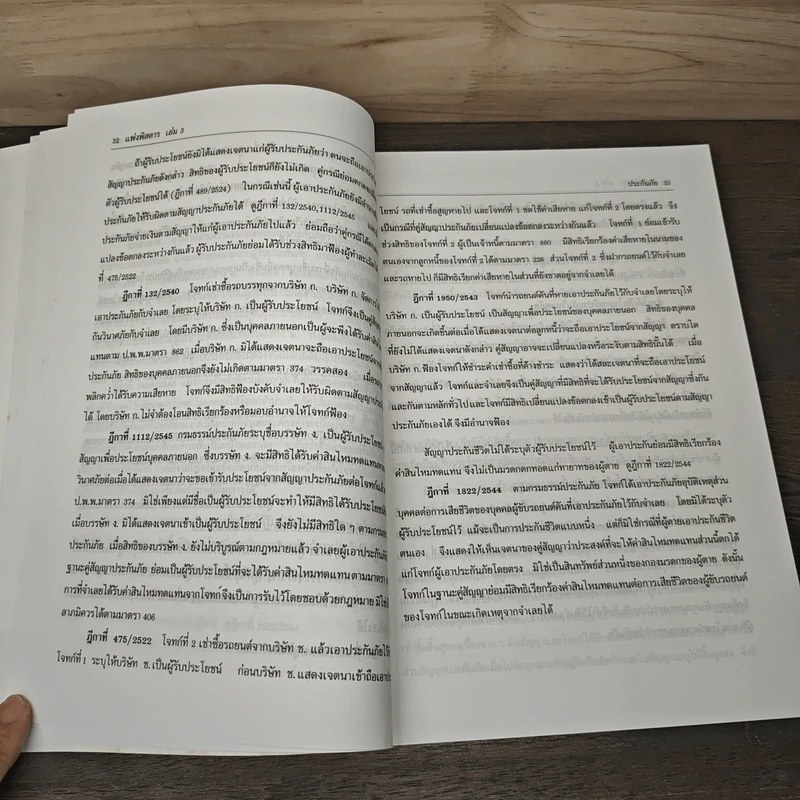 32 แพ่งพิสดาร เล่ม 3
ถ้าผู้รับประโยชน์ยังมิได้แสดงเจตนาแก่ผู้รับประกันภัยว่า ตนจะถือเอาป
สัญญาประกันภัยดังกล่าว สิทธิของผู้รับประโยชน์ก็ยังไม่เกิด คู่กรณีย่อมตกลง
ตัวผู้รับประโยชน์ได้ (ฎีกาที่ 489/2524) ในกรณีเช่นนี้ ผู้เอาประกันภัยยังมีอำนา
ประกันภัยให้รับผิดตามสัญญาประกันภัยได้ ดูฎีกาที่ 132/2540,1112/2545 และถ้า
ประกันภัยจ่ายเงินตามสัญญาให้แก่ผู้เอาประกันภัยไปแล้ว ย่อมถือว่าคู่กรณีได้ตก
แปลงข้อตกลงระหว่างกันแล้ว ผู้รับประกันภัยย่อมได้รับช่วงสิทธิมาฟ้องผู้ทำละเมิด
ที่ 475/2522
ฎีกาที่ 132/2540 โจทก์เช่าซื้อรถบรรทุกจากบริษัท ก. บริษัท ก. จัดการ
เอาประกันภัยกับจำเลย โดยระบุให้บริษัท ก. เป็นผู้รับประโยชน์ โจทก์จึงเป็นคู่สัญ
กันวินาศภัยกับจำเลย โดยมีบริษัท ก. ซึ่งเป็นบุคคลภายนอกเป็นผู้จะพึงได้รับค่าสิน
แทนตาม ป.พ.พ.มาตรา 862 เมื่อบริษัท ก. มิได้แสดงเจตนาจะถือเอาประโยชน์จาก
ประกันภัย สิทธิของบุคคลภายนอกจึงยังไม่เกิดตามมาตรา 374 วรรคสอง เมื่อรถ
พลิกคว่ำได้รับความเสียหาย โจทก์จึงมีสิทธิฟ้องบังคับจำเลยให้รับผิดตามสัญญาประ
ได้ โดยบริษัท ก. ไม่จำต้องโอนสิทธิเรียกร้องหรือมอบอำนาจให้โจทก์ฟ้อง
ฎีกาที่ 1112/2545 กรมธรรม์ประกันภัยระบุชื่อบรรษัท ง. เป็นผู้รับประโยชน์
สัญญาเพื่อประโยชน์บุคคลภายนอก ซึ่งบรรษัท ง. จะมีสิทธิได้รับค่าสินไหมทดแทนจาก
วินาศภัยต่อเมื่อได้แสดงเจตนาว่าจะขอเข้ารับประโยชน์จากสัญญาประกันภัยต่อโจทก์แล้ว
ป.พ.พ.มาตรา 374 มิใช่เพียงแต่มีชื่อเป็นผู้รับประโยชน์จะทำให้มีสิทธิได้รับประโยชน์
เมื่อบรรษัท ง. มิได้แสดงเจตนาเข้าเป็นผู้รับประโยชน์ จึงยังไม่มีสิทธิใด ๆ ตามกรม
ประกันภัย เมื่อสิทธิของบรรษัท ง. ยังไม่บริบูรณ์ตามกฎหมายแล้ว จำเลยผู้เอาประกันภัย
ฐานะคู่สัญญาประกันภัย ย่อมเป็นผู้รับประโยชน์ที่จะได้รับค่าสินไหมทดแทนตามมาตรา
การที่จำเลยได้รับค่าสินไหมทดแทนจากโจทก์ จึงเป็นการรับไว้โดยชอบด้วยกฎหมาย มิใช่
ลาภมิควรได้ตามมาตรา 406
ฎีกาที่ 475/2522 โจทก์ที่ 2 เช่าซื้อรถยนต์จากบริษัท ช. แล้วเอาประกันภัยไว้
โจทก์ที่ 1 ระบุให้บริษัท ช. เป็นผู้รับประโยชน์ ก่อนบริษัท ช. แสดงเจตนาเข้าถือเอาประ
ประกันภัย 33
โยชน์ รถที่เช่าซื้อสูญหายไป และโจทก์ที่ 1 ชดใช้ค่าเสียหาย แก่โจทก์ที่ 2 โดยตรงแล้ว จึง
เป็นกรณีที่คู่สัญญาประกันภัยเปลี่ยนแปลงข้อตกลงระหว่างกันแล้ว โจทก์ที่ 1 ย่อมเข้ารับ
ช่วงสิทธิของโจทก์ที่ 2 ผู้เป็นเจ้าหนี้ตามมาตรา 880 มีสิทธิเรียกร้องค่าเสียหายในนามของ
ตนเองจากลูกหนี้ของโจทก์ที่ 2 ได้ตามมาตรา 226 ส่วนโจทก์ที่ 2 ซึ่งฝากรถยนต์ไว้กับจำเลย
และรถหายไป ก็มีสิทธิเรียกค่าเสียหายในส่วนที่ยังขาดอยู่จากจำเลยได้
ฎีกาที่ 1950/2543 โจทก์นำรถยนต์คันที่หายเอาประกันภัยไว้กับจำเลยโดยระบุให้
บริษัท ก. เป็นผู้รับประโยชน์ เป็นสัญญาเพื่อประโยชน์ของบุคคลภายนอก สิทธิของบุคคล
ภายนอกจะเกิดขึ้นต่อเมื่อได้แสดงเจตนาต่อลูกหนี้ว่าจะถือเอาประโยชน์จากสัญญา ตราบใด
ที่ยังไม่ได้แสดงเจตนาดังกล่าว คู่สัญญาอาจจะเปลี่ยนแปลงหรือระงับตามสิทธินั้นได้ เมื่อ
บริษัท ก. ฟ้องโจทก์ให้ชำระค่าเช่าซื้อที่ค้างชำระ แสดงว่าได้สละเจตนาที่จะถือเอาประโยชน์
จากสัญญาแล้ว โจทก์และจำเลยจึงเป็นคู่สัญญาที่มีสิทธิที่จะได้รับประโยชน์จากสัญญาซึ่งกัน
และกันตามหลักทั่วไป และโจทก์มีสิทธิเปลี่ยนแปลงข้อตกลงเข้าเป็นผู้รับประโยชน์ตามสัญญา
ประกันภัยเองได้ จึงมีอำนาจฟ้อง
สัญญาประกันชีวิตไม่ได้ระบุตัวผู้รับประโยชน์ไว้ ผู้เอาประกันย่อมมีสิทธิเรียกร้อง
ค่าสินไหมทดแทน จึงไม่เป็นมรดกตกทอดแก่ทายาทของผู้ตาย ดูฎีกาที่ 1822/2544
ฎีกาที่ 1822/2544 ตามกรมธรรม์ประกันภัย โจทก์ได้เอาประกันภัยอุบัติเหตุส่วน
บุคคลต่อการเสียชีวิตของบุคคลผู้ขับรถยนต์คันที่เอาประกันภัยไว้กับจำเลย โดยมิได้ระบุตัว
ผู้รับประโยชน์ไว้ แม้จะเป็นการประกันชีวิตแบบหนึ่ง แต่ก็มิใช่กรณีที่ผู้ตายเอาประกันชีวิต
ตนเอง จึงแสดงให้เห็นเจตนาของคู่สัญญาว่าประสงค์ที่จะให้ค่าสินไหมทดแทนส่วนนี้ตกได้
แก่โจทก์ผู้เอาประกันภัยโดยตรง มิใช่เป็นสินทรัพย์ส่วนหนึ่งของกองมรดกของผู้ตาย ดังนั้น
โจทก์ในฐานะคู่สัญญาย่อมมีสิทธิเรียกร้องค่าสินไหมทดแทนต่อการเสียชีวิตของผู้ขับรถยนต์
ของโจทก์ในขณะเกิดเหตุจากจำเลยได้